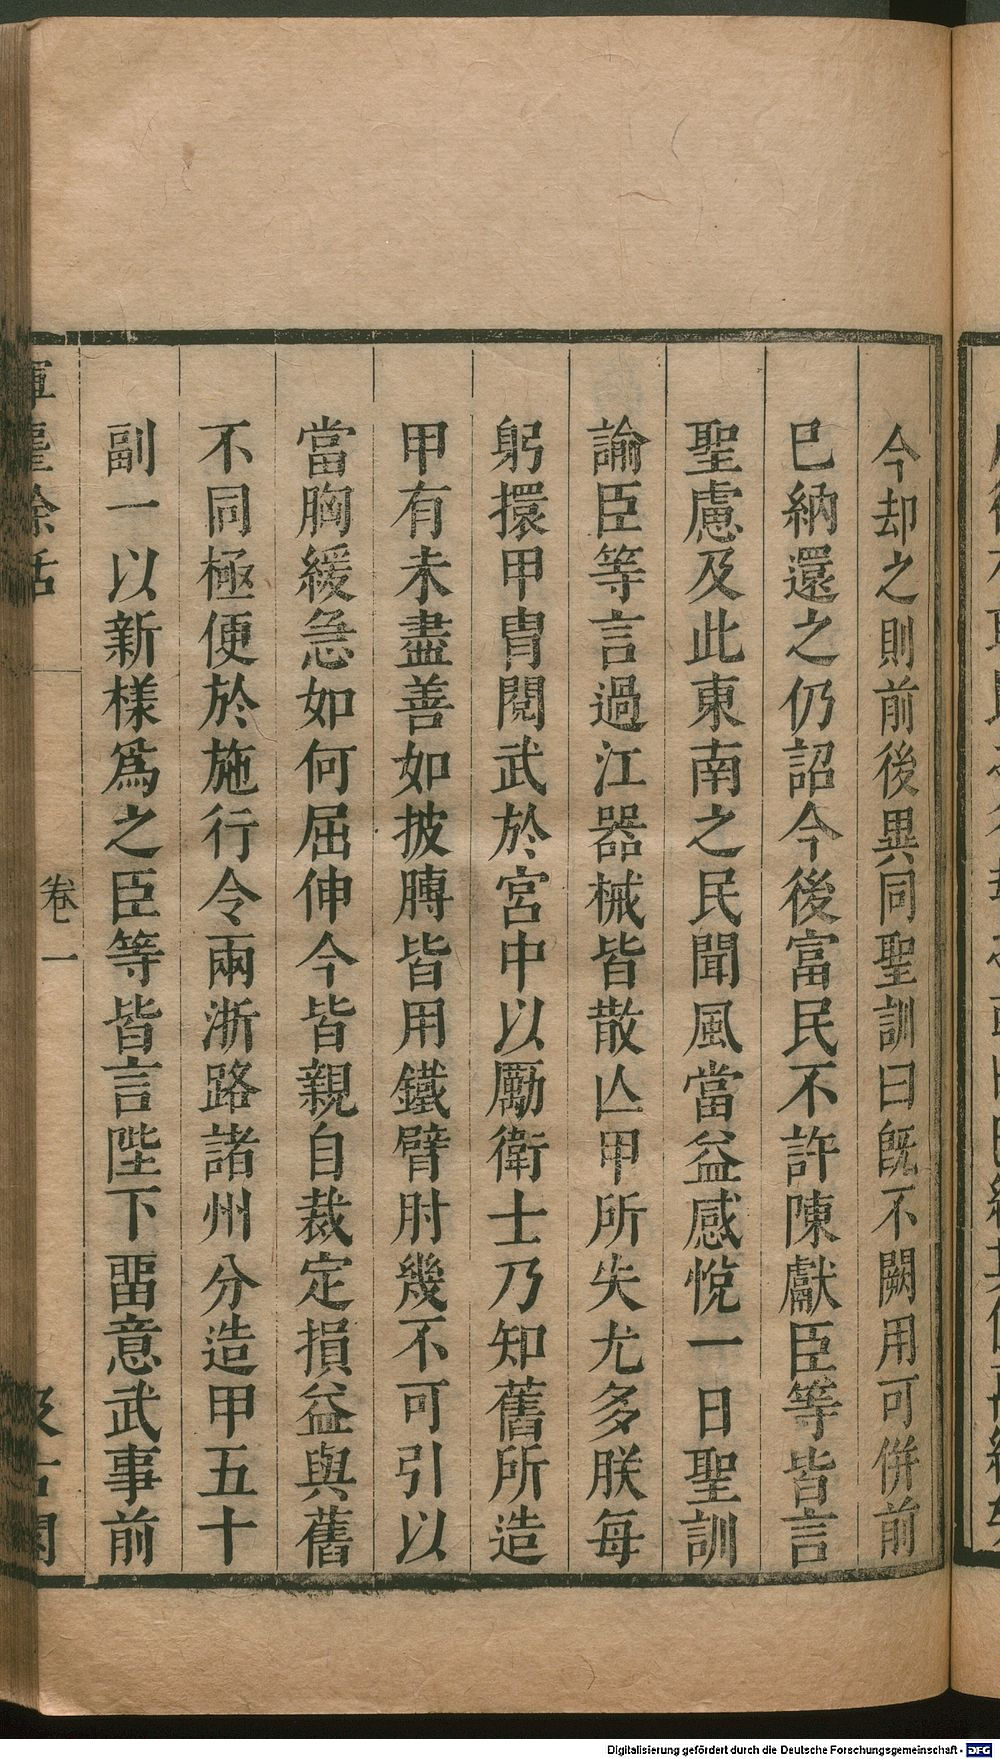 今却之則前後異同聖訓曰旣不闕用可併前
已納還之仍詔今後富民不許陳獻臣等皆言
聖慮及此東南之民聞風當益感悅一日聖訓
諭臣等言過江器械皆散亾甲所失尤多朕每
躬擐甲冑閱武於宮中以勵衛士乃知舊所造
甲有未盡善如披膊皆用鐵臂肘幾不可引以
當胸緩急如何屈伸今皆親自裁定損益與舊
不同極便於施行令兩浙路諸州分造甲五十
副一以新樣爲之臣等皆言陛下畱意武事前
揮麈餘話
卷一
汲古閣
Digitalisierung gefördert durch die Deutsche Forschungsgemeinschaft - DFG